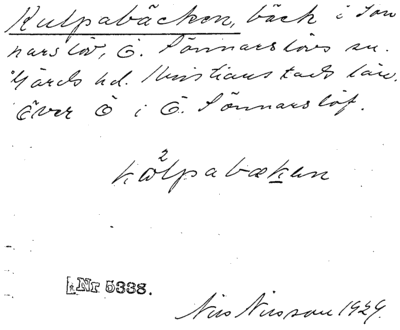 Kulpabäcken, bäck i Sön
narslöv, Ö. Sönnarslövs sn.
Gärds hd. Kristianstads län.
Över Ö i Ö. Sönnarslöf.
kω2lpabækən
Nr 5338.
Nils Nilsson 1929.